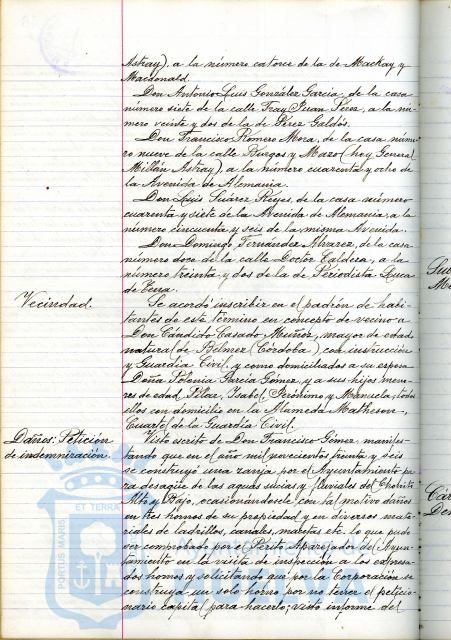 Astray), a la número catorce de la de Mackay y
Macdonald.
Don Antonio Luis González García, de la casa
número siete de la calle Fray Juan Pérez, a la nú-
mero veinte y dos de la de Pérez Galdós.
Don Francisco Romero Mora, de la casa núme-
ro nueve de la calle Burgos y Mazo (hoy General
Millán Astray), a la número cuarenta y ocho de
la Avenida de Alemania.
Don Luis Suárez Reyes, de la casa número
cuarenta y siete de la Avenida de Alemania, a la
número cincuenta y seis de la misma Avenida.
Don Domingo Fernández Álvarez, de la casa
número doce de la calle Doctor Caldera, a la
número treinta y dos de la de Periodista Luca
de Tena.
Vecindad.
Se acordó inscribir en el padrón de habi-
tantes de este término en concepto de vecino a
Don Cándido Casado Muñoz, mayor de edad
natural de Belmez (Córdoba) con instrucción
y Guardia Civil, y como domiciliados a su esposa
Doña Polonia García Gómez, y a sus hijos meno-
res de edad Pilar, Isabel, Jerónimo y Manuela, todos
ellos con domicilio en la Alameda Matheson,
Cuartel de la Guardia Civil.
Daños: Petición
de indemnización.
Visto escrito de Don Francisco Gómez manifes-
tando que en el año mil novecientos treinta y seis
se construyó una zanja por el Ayuntamiento pa-
ra desagüe de las aguas sucias y fluviales del Chorrito
Alto y Bajo, ocasionándosele con tal motivo daños
en tres hornos de su propiedad y en diversos mate-
riales de ladrillos, canales, maretas etc. lo que pudo
ser comprobado por el Perito Aparejador del Ayun-
tamiento en la visita de inspección a los expresa-
dos hornos y solicitando que por la Corporación se
construya un solo horno por no tener el peticio-
nario capital para hacerlo; visto informe del
ET TERRA
PORTUS MARIS